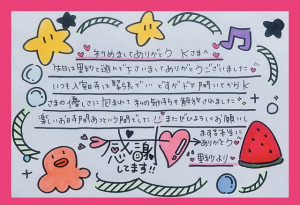 初めましてありがとう Kさまへ
本日は里紗と遊んで下さいましてありがとうございました
いつも入室時は緊張で… ですがドア開いてからK
さまの優しさに包まれて私の気持ちも解放されました
楽しいお時間あっという間でした!!またどうぞよろしくお願いし
ます
ありがとう
感謝
してます!!
里紗より